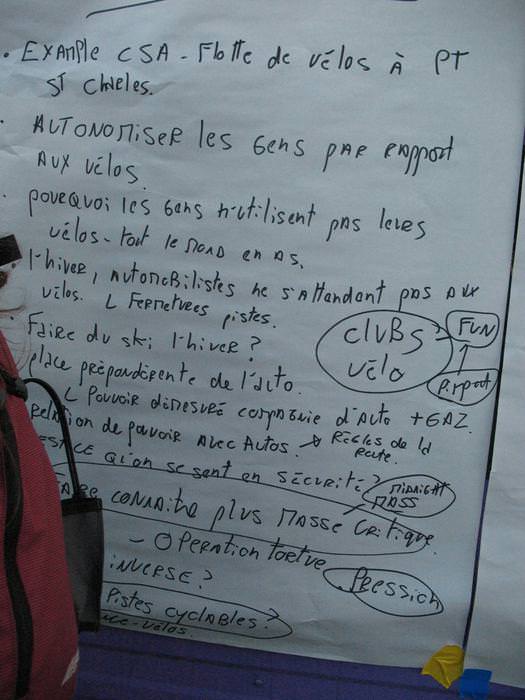 • EXAMPLE CSA - Flotte de vélos à PT
ST CHARLES.
• AUTONOMISER les Gens PAR RAPPORT
AUX vélos.
• POURQUOI les Gens n'utilisent pas leurs
vélos - tout le mond en as.
• l'hiver, AUTOMOBILISTES ne s'attendant pas AUX
vélos. L FERMETURES pistes.
Faire du ski l'hiver?
CLUBS
vélo
FUN
place prépondérente de l'auto.
RAPPORT
L POUVOIR démesuré compagnie d'Auto + GAZ.
RELATION de pouvoir avec Autos. → Règles de la
Route.
EST CE QU'on se sent en SÉCURITÉ?
MIDNIGHT
MASS
FAIRE CONNAITRE plus MASSE CRITIQUE.
- OPERATION tortue
INVERSE?
Pression
PISTES CYCLABLES?
vélos.